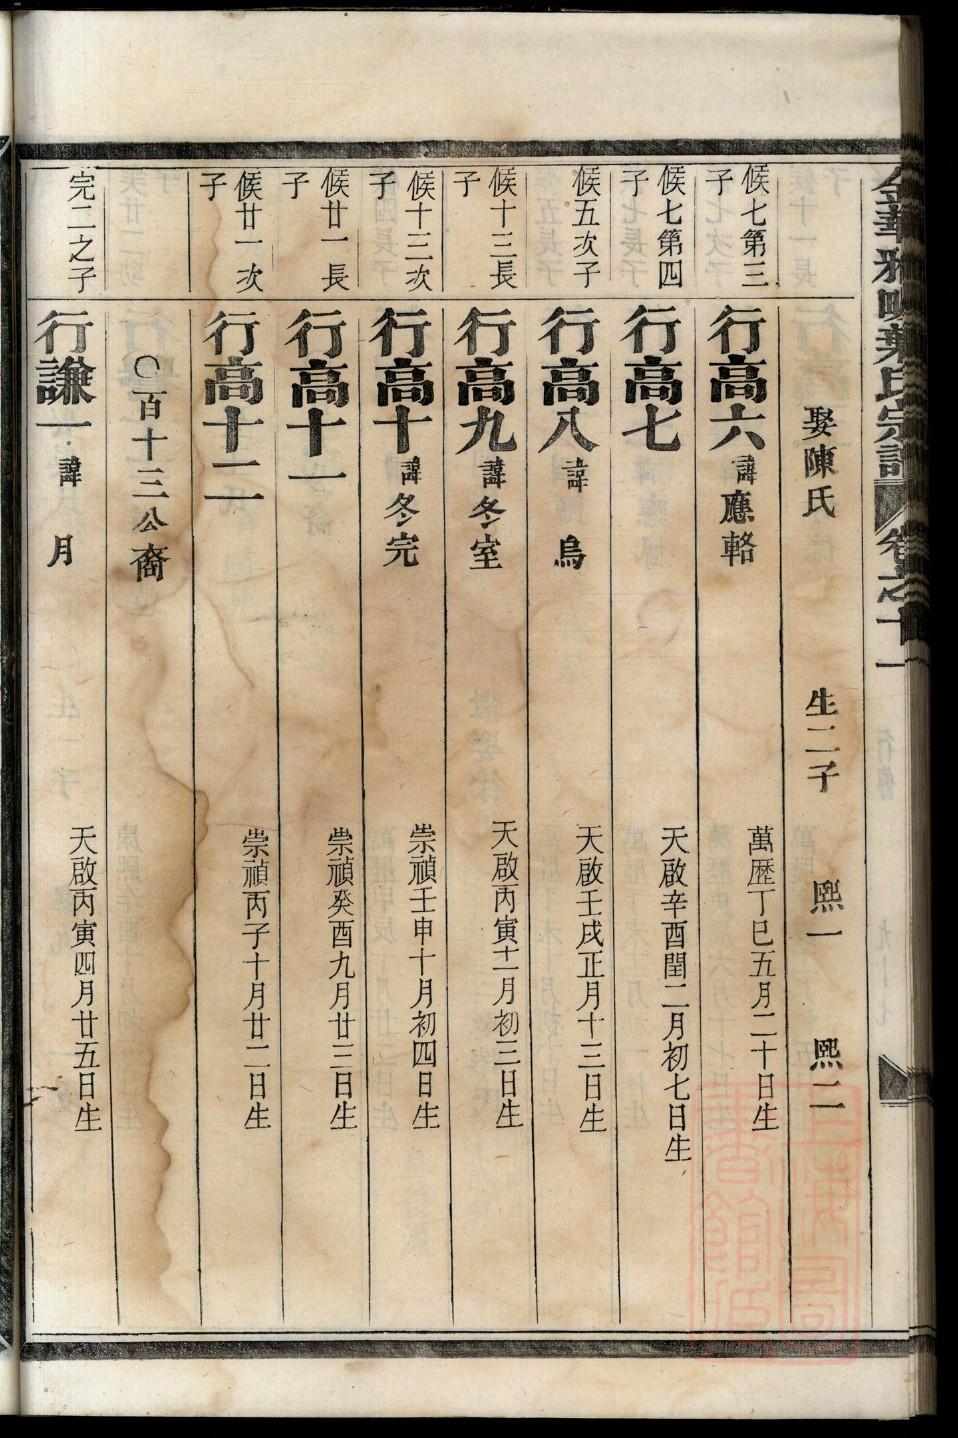 金華雅畈葉氏宗譜 卷之十一
娶陳氏 生二子 熙一 熙二
候七第三子 行高六 諱應輅 萬歷丁巳五月二十日生
候七第四子 行高七 天啟辛酉閏二月初七日生
候五次子 行高八 諱烏 天啟壬戌正月十三日生
候十三長子 行高九 諱冬室 天啟丙寅十一月初三日生
候十三次子 行高十 諱冬完 崇禎壬申十月初四日生
候廿一長子 行高十一 崇禎癸酉九月廿三日生
候廿一次子 行高十二 崇禎丙子十月廿二日生
○二百十三公裔
完二之子 行謙一 諱月 天啟丙寅四月廿五日生
上海圖書館藏